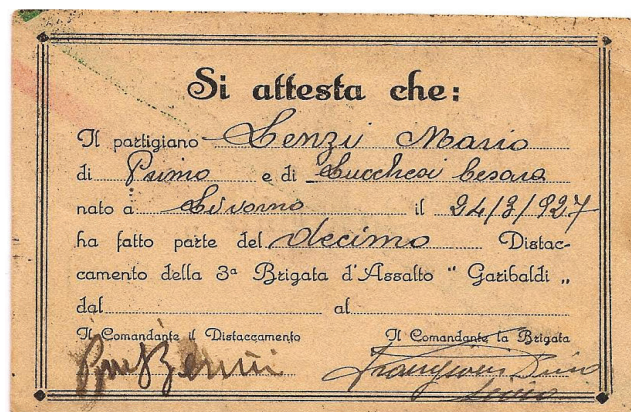 Si attesta che:
Il partigiano Lenzi Mario
di Primo e di Lucchesi Cesara
nato a Livorno il 24/3/927
ha fatto parte del decimo Distac-
camento della 3ª Brigata d'Assalto " Garibaldi „
dal al
Il Comandante il Distaccamento Il Comandante la Brigata